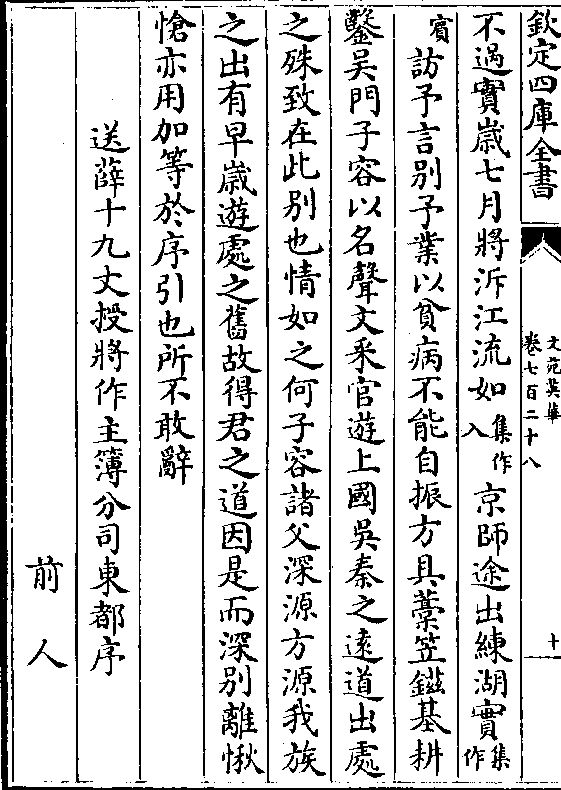 欽定四庫全書
文苑英華
卷七百二十八
十
不過實歲七月將泝江流如集作入京師途出練湖實集作
賓訪予言別予業以貧病不能自振方具藳笠鎡基耕
鑿吳門子容以名聲文采官遊上國吳秦之遠道出處
之殊致在此別也情如之何子容諸父深源方源我族
之出有早歲遊處之舊故得君之道因是而深別離愀
愴亦用加等於序引也所不敢辭
送薛十九丈授將作主簿分司東都序
前人